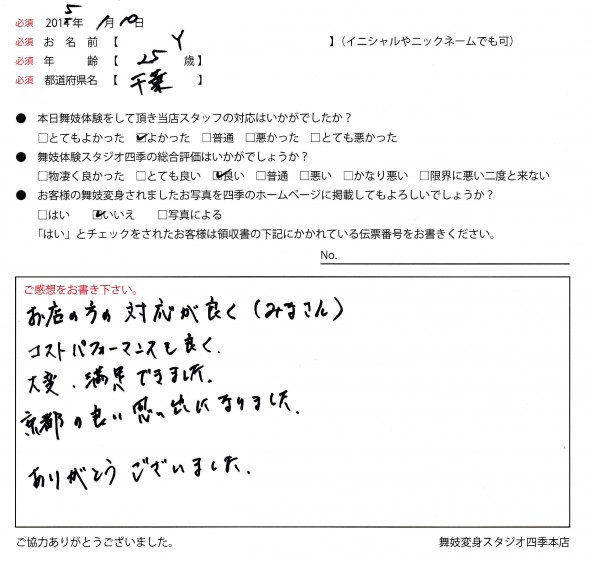 必須 2015年 1月10日
必須 お名前 【 Y 】(イニシャルやニックネームでも可)
必須 年齢 【 25 歳】
必須 都道府県名 【 千葉 】
● 本日舞妓体験をして頂き当店スタッフの対応はいかがでしたか?
□とてもよかった ☑よかった □普通 □悪かった □とても悪かった
● 舞妓体験スタジオ四季の総合評価はいかがでしょうか?
□物凄く良かった □とても良い ☑良い □普通 □悪い □かなり悪い □限界に悪い二度と来ない
● お客様の舞妓変身されましたお写真を四季のホームページに掲載してもよろしいでしょうか?
□はい ☑いいえ □写真による
「はい」とチェックをされたお客様は領収書の下記にかかれている伝票番号をお書きください。
No.
ご感想をお書き下さい。
お店の方の対応が良く(みきさん)
コストパフォーマンスも良く、
大変、満足できました。
京都の良い思い出になりました。
ありがとうございました。
ご協力ありがとうございました。 舞妓変身スタジオ四季本店